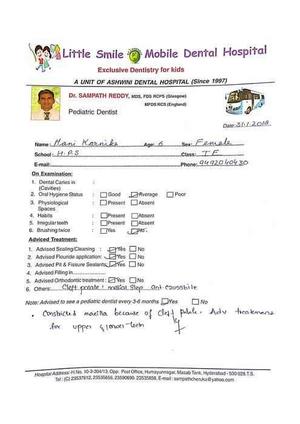 Little Smile Mobile Dental Hospital
Exclusive Dentistry for kids
A UNIT OF ASHWINI DENTAL HOSPITAL (Since 1997)
Dr. SAMPATH REDDY, MDS, FDS RCPS (Glasgow)
MFDS RCS (England)
Pediatric Dentist
Date: 31.1.2018
Name: Mani Karnika Age: 6 Sex: Female
School: H.P.S Class: I E
E-mail: Phone: 9492040480
On Examination:
1. Dental Caries in :
(Cavities)
2. Oral Hygiene Status : Good Average Poor
3. Physiological : Present Absent
Spaces
4. Habits : Present Absent
5. Irregular teeth : Present Absent
6. Brushing twice : Yes No
Adviced Treatment:
1. Advised Scaling/Cleaning : Yes No
2. Advised Fluoride application: Yes No
3. Advised Pit & Fissure Sealants: Yes No
4. Advised Filling in
5. Advised Orthodontic treatment : Yes No
6. Others: Cleft palate mesial step Ant crossbite
Note: Advised to see a pediatric dentist every 3-6 months Yes No
Constricted maxilla because of Cleft palate. Adv treatment
for upper
Hospital Address: H.No. 10-3-304/13, Opp. Post Office, Humayunnagar, Masab Tank, Hyderabad - 500 028. T.S.